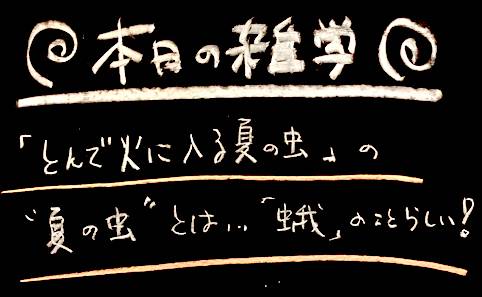 本日の雑学
「とんで火に入る夏の虫」の
"夏の虫"とは…「蛾」のことらしい!